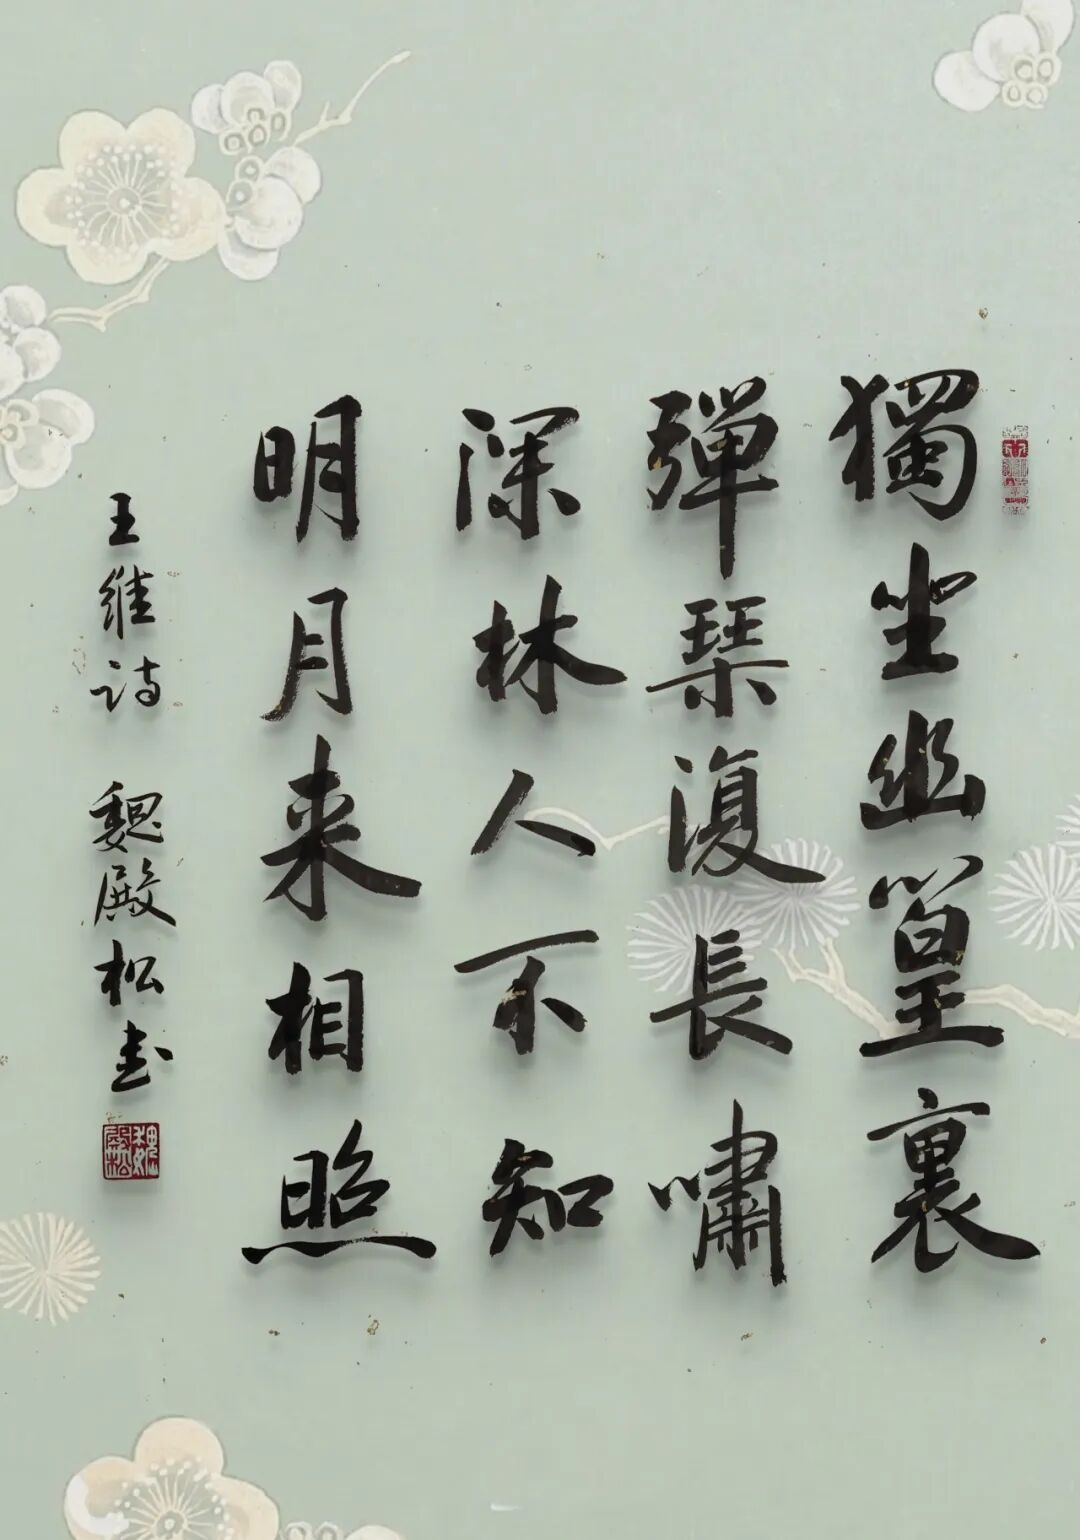 獨坐幽篁裏
彈琴復長嘯
深林人不知
明月来相照
王维诗 魏殿松书